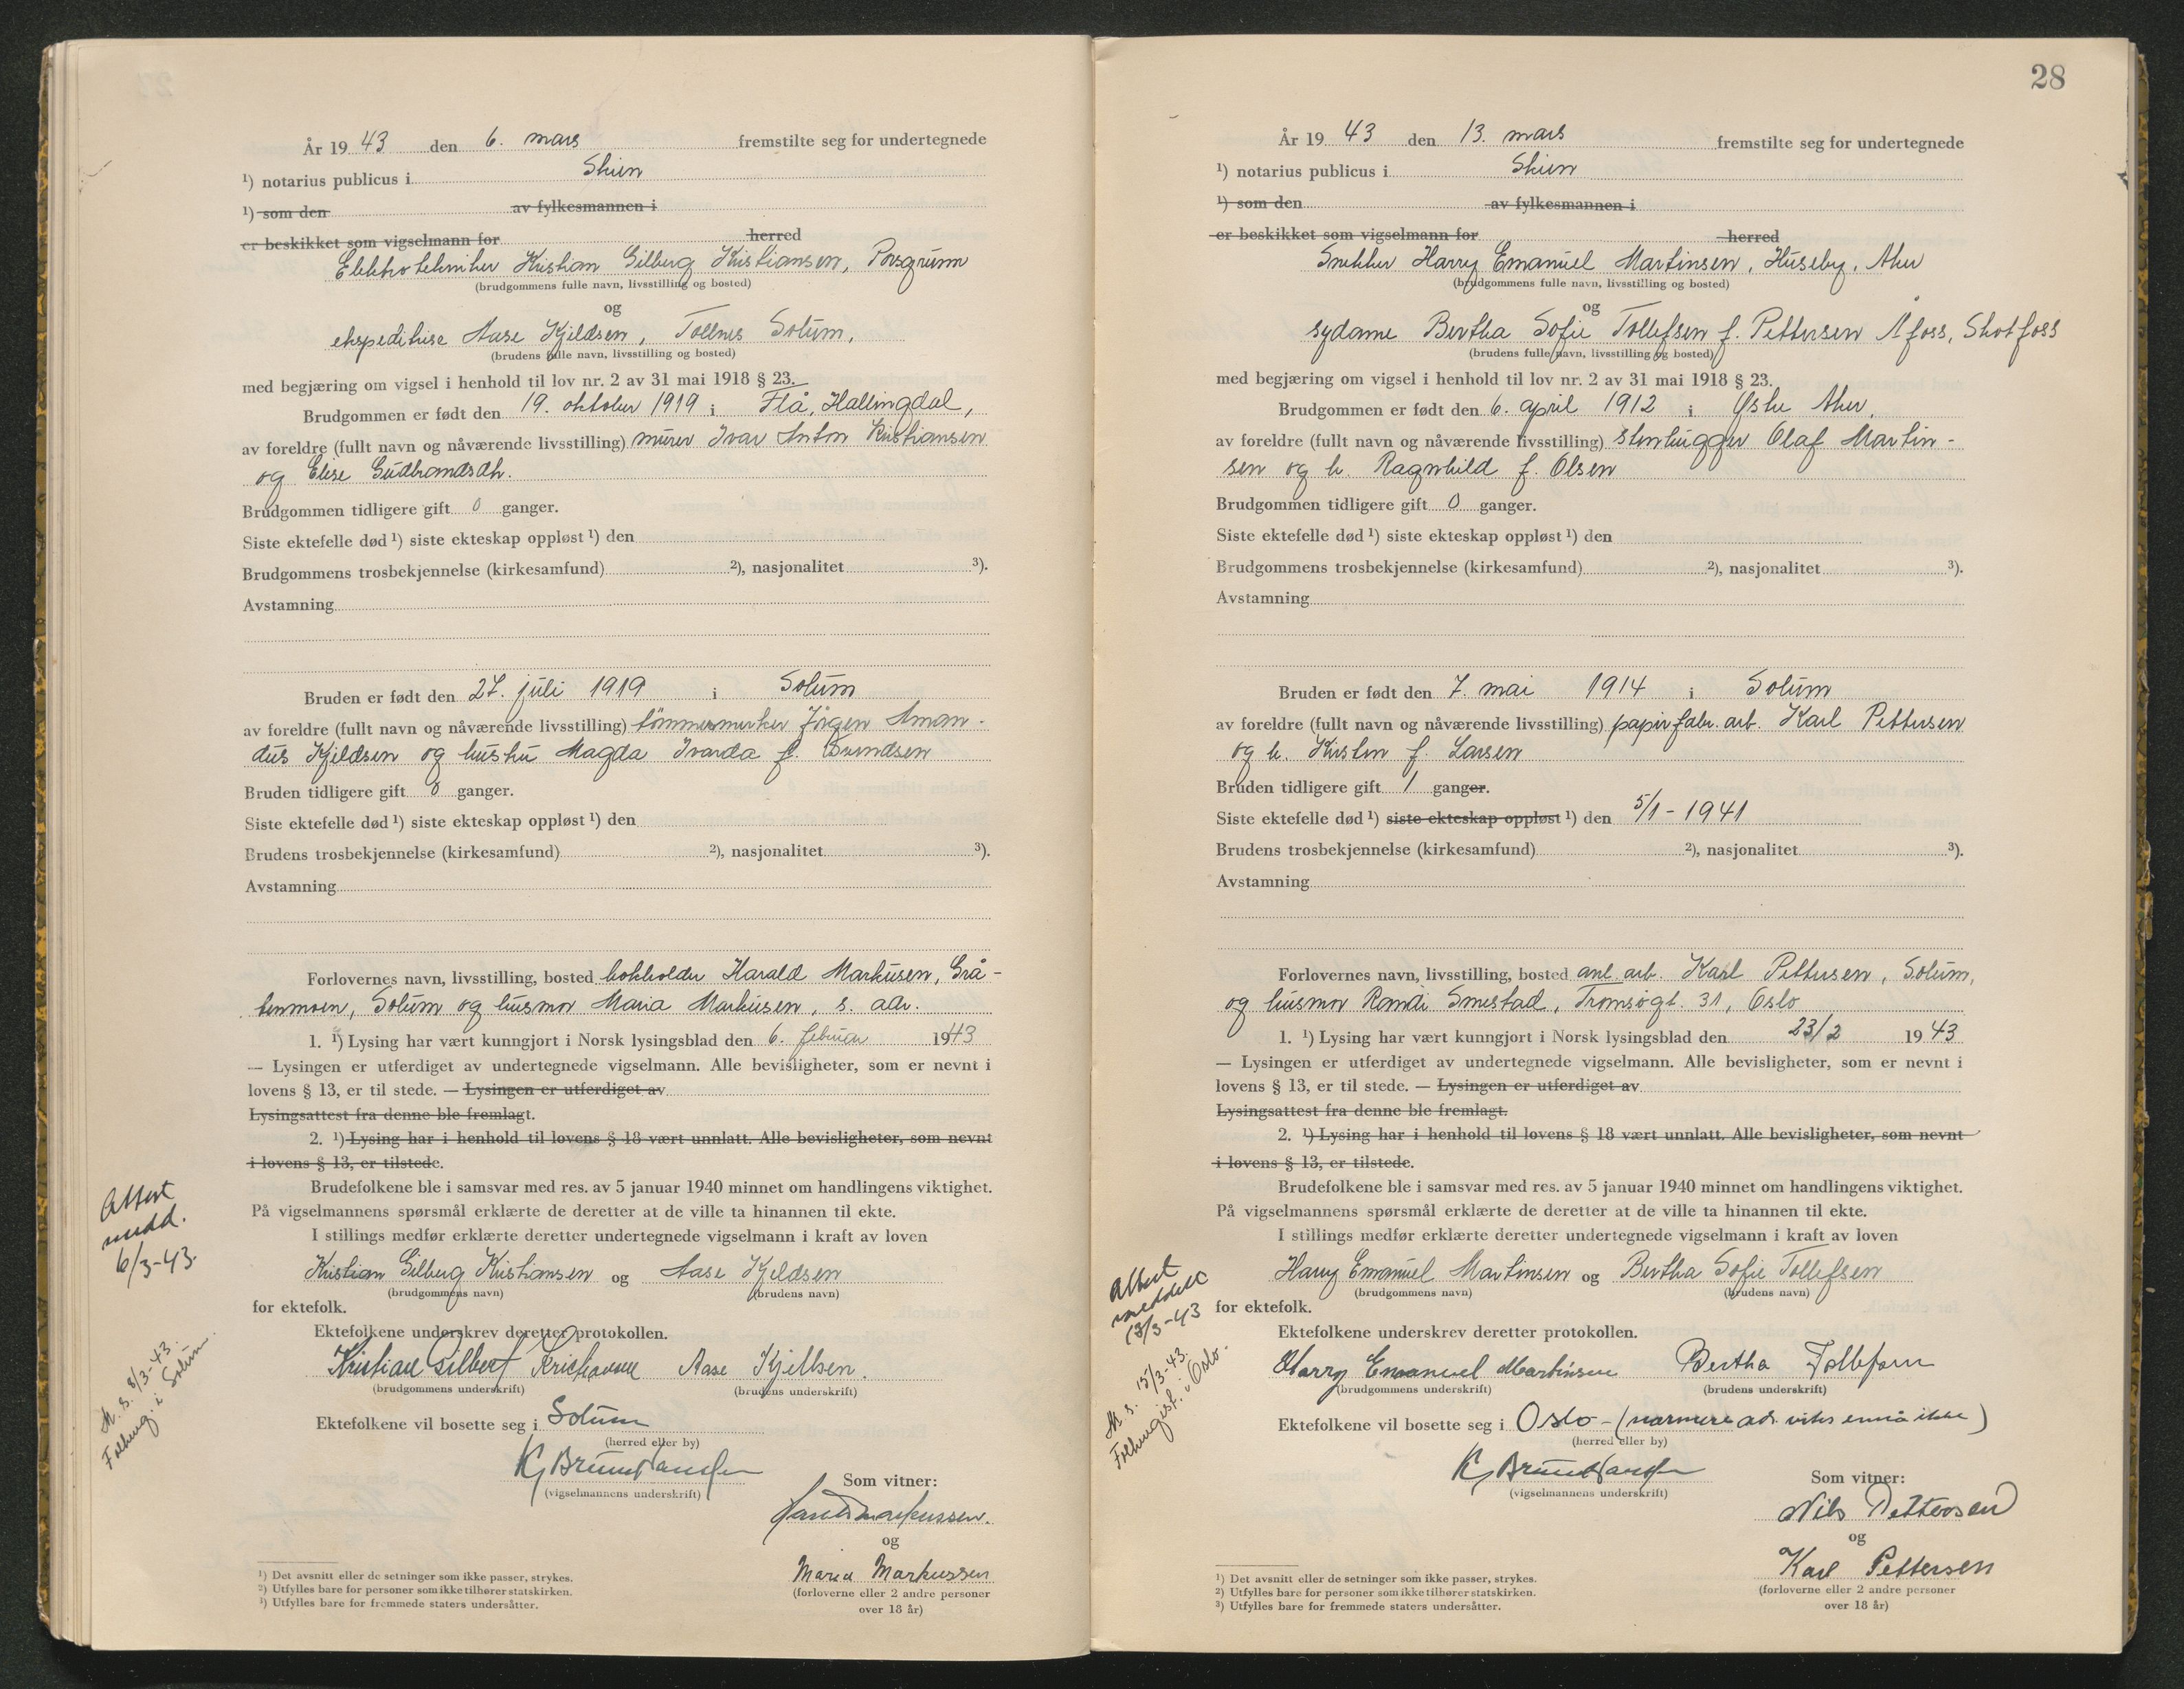 År 19 43 den 6. mars fremstilte seg for undertegnede
¹) notarius publicus i Skien
¹) som den av fylkesmannen i
er beskikket som vigselmann for herred
Elektrotekniker Kristian Gilberg Kristiansen, Porsgrunn
(brudgommens fulle navn, livsstilling og bosted)
og
ekspeditrise Aase Kjeldsen, Tollnes Solum,
(brudens fulle navn, livsstilling og bosted)
med begjæring om vigsel i henhold til lov nr. 2 av 31 mai 1918 § 23.
Brudgommen er født den 19. oktober 1919 i Flå, Hallingdal,
av foreldre (fullt navn og nåværende livsstilling) murer Ivar Anton Kristiansen
og Elise Gudbrandsdtr.
Brudgommen tidligere gift 0 ganger.
Siste ektefelle død ¹) siste ekteskap oppløst ¹) den
Brudgommens trosbekjennelse (kirkesamfund) ²), nasjonalitet ³).
Avstamning
Bruden er født den 27. juli 1919 i Solum
av foreldre (fullt navn og nåværende livsstilling) tømmermerker Jørgen Aman-
dus Kjeldsen og hustru Magda Ivarda f.
Bruden tidligere gift 0 ganger.
Siste ektefelle død ¹) siste ekteskap oppløst ¹) den
Brudens trosbekjennelse (kirkesamfund) ²), nasjonalitet ³).
Avstamning
Forlovernes navn, livsstilling, bosted bokholder Harald Markusen, Grå-
tenmoen, Solum og husmor Maria Markusen, s. adr.
1. ¹) Lysing har vært kunngjort i Norsk lysingsblad den 6. februar 1943
— Lysingen er utferdiget av undertegnede vigselmann. Alle bevisligheter, som er nevnt i
lovens § 13, er til stede. — Lysingen er utferdiget av
Lysingsattest fra denne ble fremlagt.
2. ¹) Lysing har i henhold til lovens § 18 vært unnlatt. Alle bevisligheter, som nevnt
i lovens § 13, er tilstede.
Brudefolkene ble i samsvar med res. av 5 januar 1940 minnet om handlingens viktighet.
På vigselmannens spørsmål erklærte de deretter at de ville ta hinannen til ekte.
I stillings medfør erklærte deretter undertegnede vigselmann i kraft av loven
Kristian Gilberg Kristiansen og Aase Kjeldsen
(brudgommens navn) (brudens navn)
for ektefolk.
Ektefolkene underskrev deretter protokollen.
Kristian Gilbert Kristiansen Aase Kjeldsen.
(brudgommens underskrift) (brudens underskrift)
Ektefolkene vil bosette seg i Solum
(herred eller by)
(vigselmannens underskrift)
Som vitner:
Markussen.
og
Maria Markussen
(forloverne eller 2 andre personer
over 18 år)
¹) Det avsnitt eller de setninger som ikke passer, strykes.
²) Utfylles bare for personer som ikke tilhører statskirken.
³) Utfylles bare for fremmede staters undersåtter.
Attest
medd.
6/3-43.
M. s. 8/3-43.
Folkereg. i Solum.
28
År 19 43 den 13. mars fremstilte seg for undertegnede
¹) notarius publicus i Skien
¹) som den av fylkesmannen i
er beskikket som vigselmann for herred
Snekker Harry Emanuel Martinsen, Huseby, Aker
(brudgommens fulle navn, livsstilling og bosted)
og
sydame Bertha Sofie Tollefsen f. Pettersen Åfoss, Skotfoss
(brudens fulle navn, livsstilling og bosted)
med begjæring om vigsel i henhold til lov nr. 2 av 31 mai 1918 § 23.
Brudgommen er født den 6. april 1912 i Østre Aker,
av foreldre (fullt navn og nåværende livsstilling) stenhugger Olaf Martin-
sen og h. Ragnhild f. Olsen
Brudgommen tidligere gift 0 ganger.
Siste ektefelle død ¹) siste ekteskap oppløst ¹) den
Brudgommens trosbekjennelse (kirkesamfund) ²), nasjonalitet ³).
Avstamning
Bruden er født den 7. mai 1914 i Solum
av foreldre (fullt navn og nåværende livsstilling) papirfabr. arb. Karl Pettersen
og h. Kirsten f. Larsen
Bruden tidligere gift 1 ganger.
Siste ektefelle død ¹) siste ekteskap oppløst ¹) den 5/1 - 1941
Brudens trosbekjennelse (kirkesamfund) ²), nasjonalitet ³).
Avstamning
Forlovernes navn, livsstilling, bosted anl. arb. Karl Pettersen, Solum,
og husmor Randi Smestad, Tromsøgt. 31, Oslo
1. ¹) Lysing har vært kunngjort i Norsk lysingsblad den 23/2 19 43
— Lysingen er utferdiget av undertegnede vigselmann. Alle bevisligheter, som er nevnt i
lovens § 13, er til stede. — Lysingen er utferdiget av
Lysingsattest fra denne ble fremlagt.
2. ¹) Lysing har i henhold til lovens § 18 vært unnlatt. Alle bevisligheter, som nevnt
i lovens § 13, er tilstede.
Brudefolkene ble i samsvar med res. av 5 januar 1940 minnet om handlingens viktighet.
På vigselmannens spørsmål erklærte de deretter at de ville ta hinannen til ekte.
I stillings medfør erklærte deretter undertegnede vigselmann i kraft av loven
Harry Emanuel Martinsen og Bertha Sofie Tollefsen
(brudgommens navn) (brudens navn)
for ektefolk.
Ektefolkene underskrev deretter protokollen.
Harry Emanuel Martinsen Bertha Tollefsen
(brudgommens underskrift) (brudens underskrift)
Ektefolkene vil bosette seg i Oslo - (nærmere adr. vites ennå ikke)
(herred eller by)
(vigselmannens underskrift)
Som vitner:
Nils Pettersen
og
Karl Pettersen
(forloverne eller 2 andre personer
over 18 år)
¹) Det avsnitt eller de setninger som ikke passer, strykes.
²) Utfylles bare for personer som ikke tilhører statskirken.
³) Utfylles bare for fremmede staters undersåtter.
Attest
meddelt
13/3-43
M. s. 15/3-43.
Folkeregist. i Oslo.